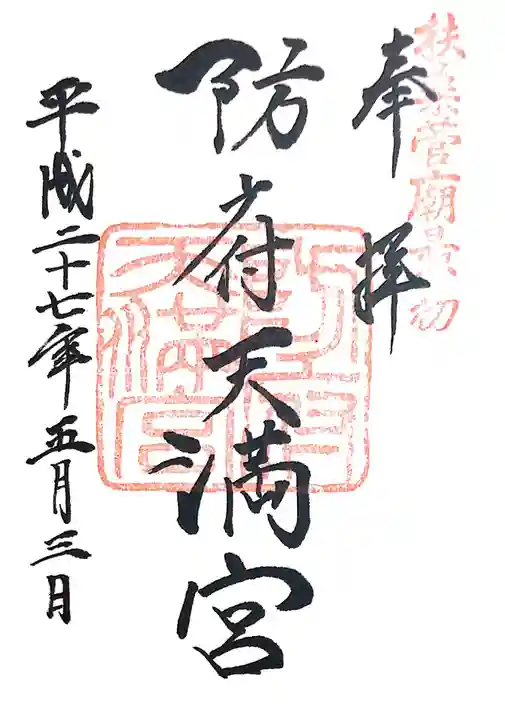 扶桑菅廟最初
奉拝
防府天満宮
平成二十七年五月三日